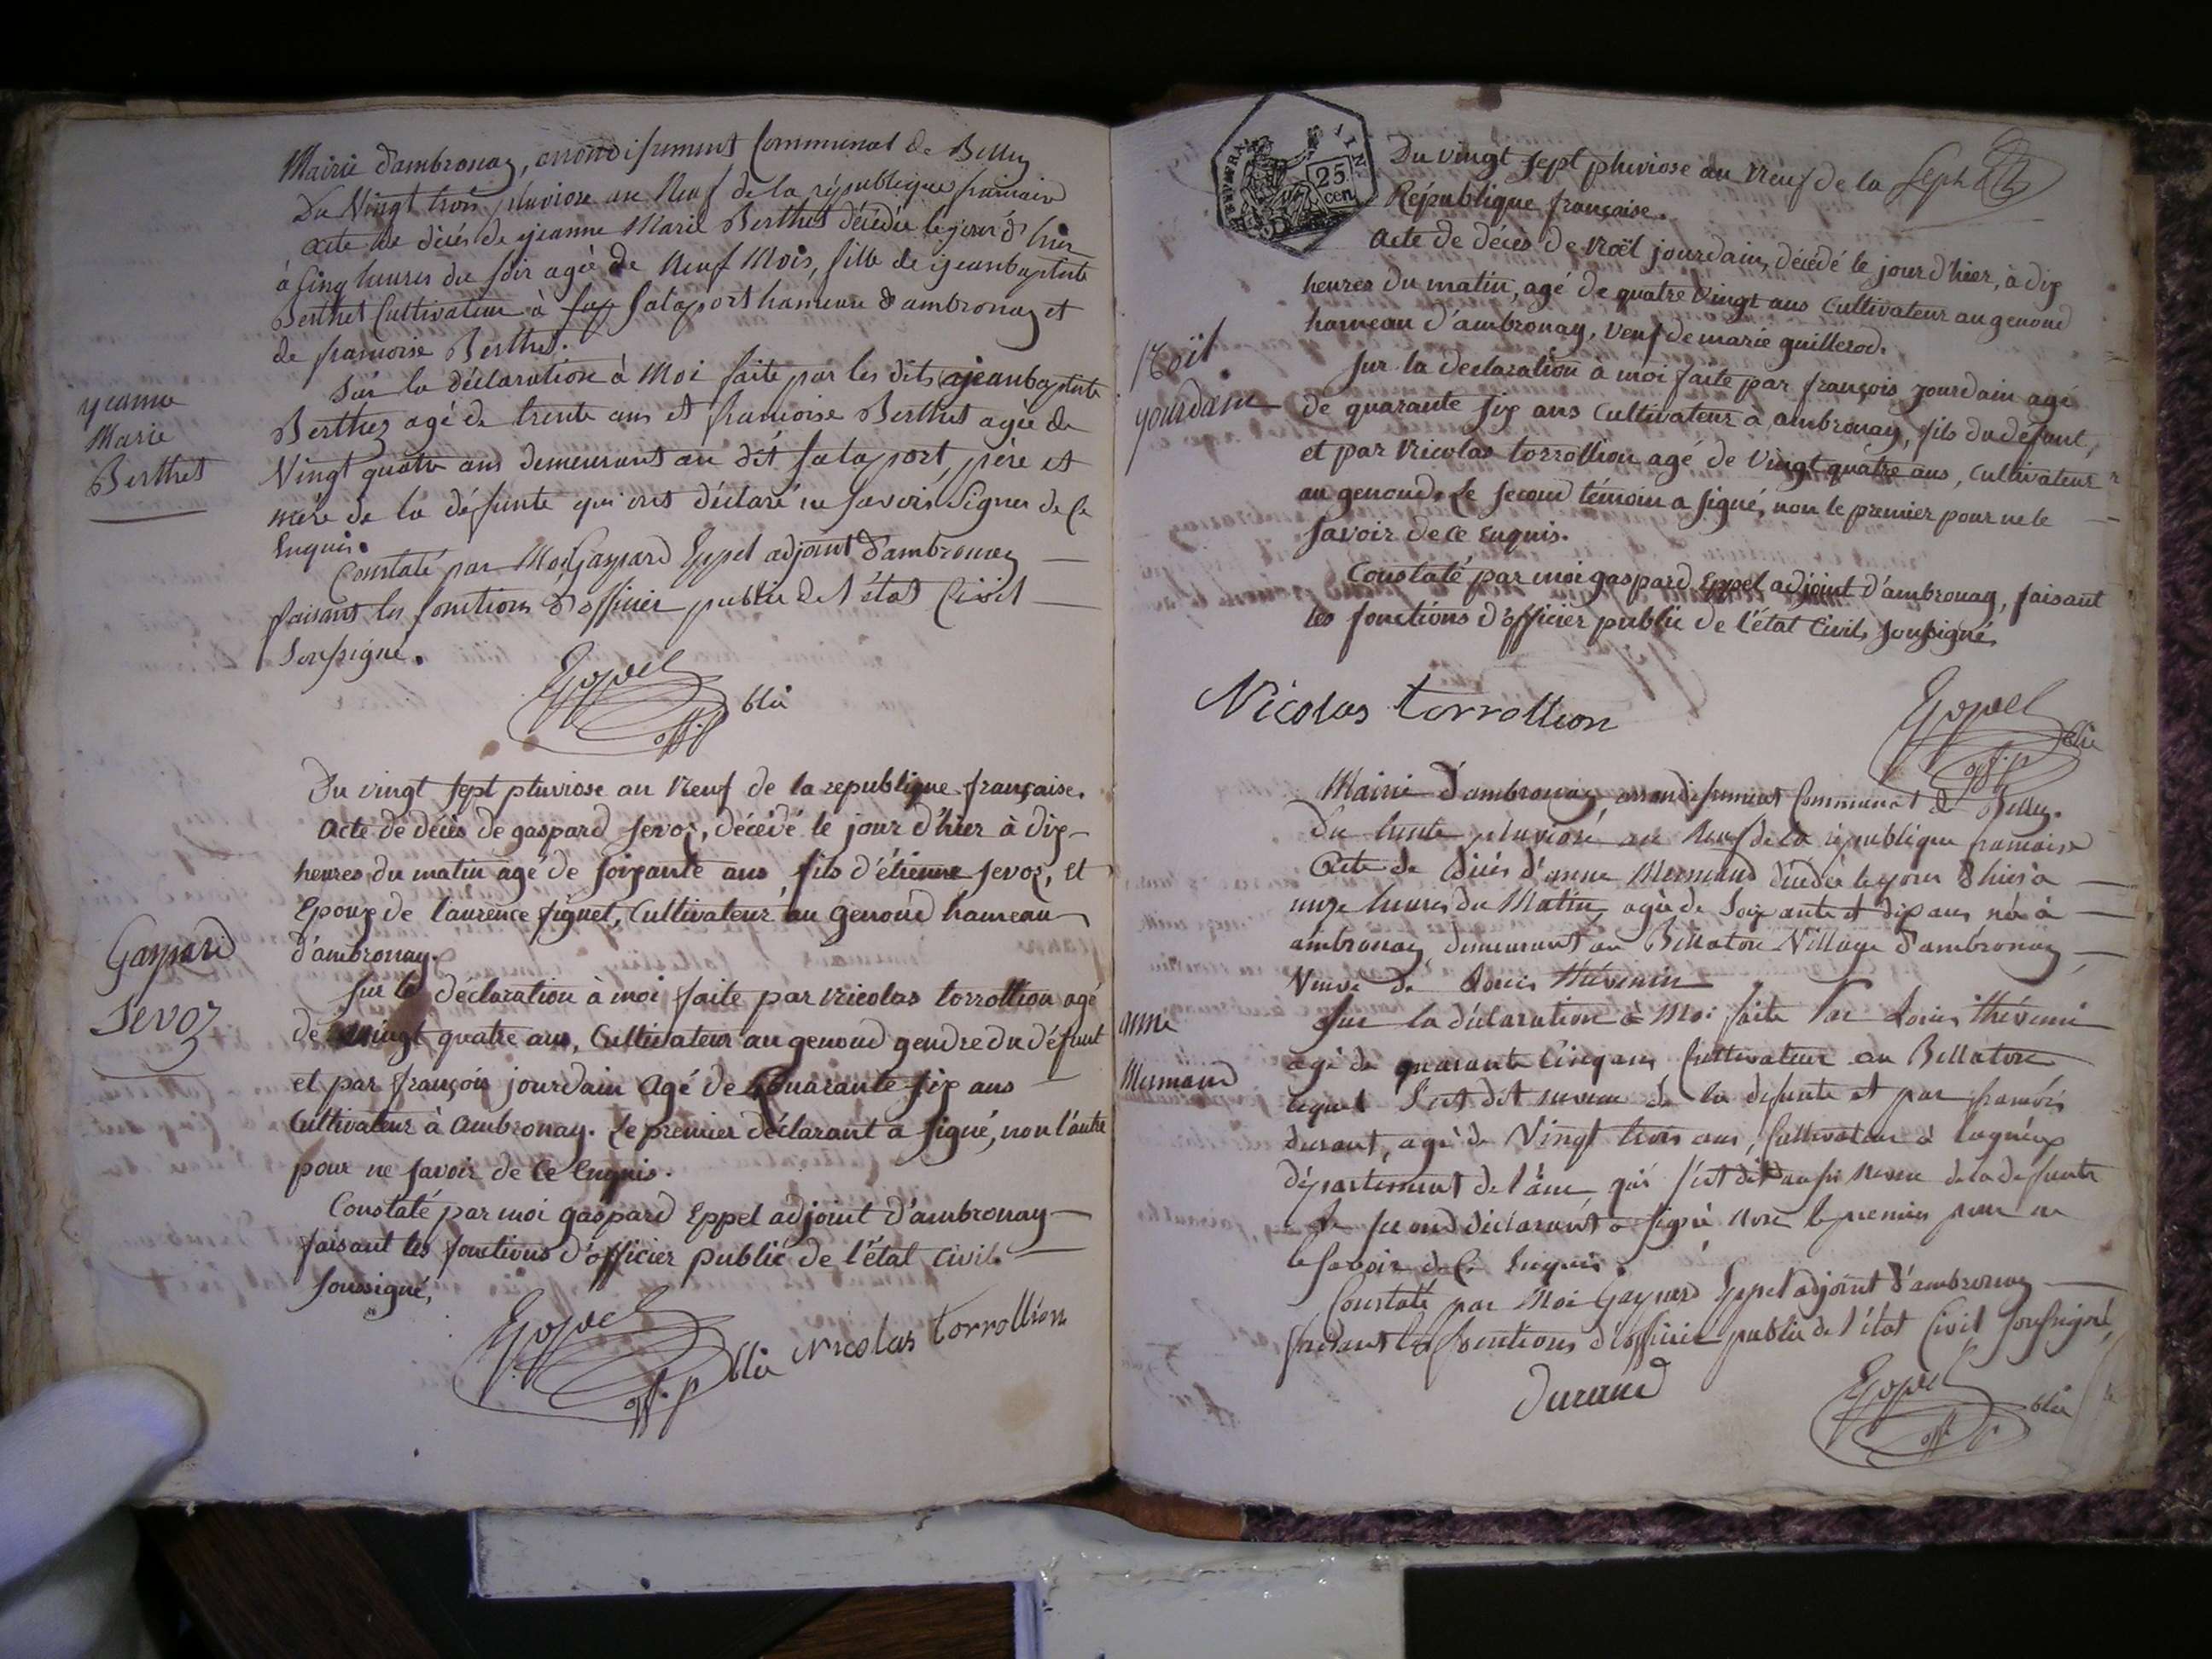 Mairie d'ambronay, arrondissement Communal de Belley
Du Vingt trois pluviose an Neuf de la république francaise
acte de décés de yeanne Marie Berthet décédée le jour d'hier
à Cinq heures du soir agée de Neuf Mois, fille de yeanbaptiste
Berthet Cultivateur à Salaport hameau d'ambronay et
de francoise Berthet.
Sur la déclaration à Moi faite par les dits yeanbaptiste
Berthez agé de trente ans et francoise Berthet agée de
Vingt quatre ans demeurant au dit Salaport, père et
mère de la défunte qui ont déclaré ne savoir Signer de Ce
Enquis.
Constaté par Moi Gaspard Eppel adjoint d'ambronay
faisant les fonctions d'officier public de l'état Civil
Soussigné.
yeanne
Marie
Berthet
Eppel
off. p blic
Du vingt sept pluviose an Neuf de la republique française.
Acte de décès de gaspard Sevoz, décédé le jour d'hier à dix
heures du matin agé de soixante ans, fils d'étienne Sevoz, et
Epoux de laurence figuet, Cultivateur au Genoud hameau
d'ambronay.
Sur la déclaration à moi faite par Nicolas torrollion agé
de vingt quatre ans, Cultivateur au genoud gendre du défunt
et par françois jourdain Agé de Quarante six ans
Cultivateur à Ambronay. Le premier déclarant a signé, non l'autre
pour ne savoir de Ce Enquis.
Constaté par moi gaspard Eppel adjoint d'ambronay
faisant les fonctions d'officier public de l'état civil
soussigné,
Gaspard
Sevoz
Eppel
off. p blic Nicolas torrollion
25
cen.
Du vingt sept pluviose an Neuf de la
République française.
Acte de décès de Noël jourdain, décédé le jour d'hier, à dix
heures du matin, agé de quatre Vingt ans Cultivateur au genoud
hameau d'ambronay, Veuf de marie guillerod.
Sur la declaration a moi faite par françois jourdain agé
de quarante six ans Cultivateur à ambronay, fils du défunt,
et par Nicolas torrollion agé de Vingt quatre ans, Cultivateur
au genoud. Le second témoin a signé, non le premier pour ne le
savoir de ce Enquis.
Constaté par moi gaspard Eppel adjoint d'ambronay, faisant
les fonctions d'officier public de l'état Civil, soussigné
Noël
yourdain
Nicolas torrollion
Eppel
off. p blic
Mairie d'ambronay arrondissement Communal de Belley.
Du trente pluviose an Neuf de la république francaise
Acte de décés d'anne Mermand décédée le jour d'hier à
onze heures du Matin, agée de Soixante et dix ans née à
ambronay, demeurant au Bellaton Village d'ambronay
Veuve de Louis thévenin
Sur la déclaration à Moi faite Par Louis thévenin
agé de quarante Cinq ans, Cultivateur au Bellaton
lequel S'est dit neveu de la défunte et par francois
durant, agé de Vingt trois ans, Cultivateur à lagnieux
département de l'ain, qui s'est dit aussi Neveu de la defunte
Le second déclarant a signé, Non le premier pour ne
le Savoir de Ce Enquis.
Constaté par Moi Gaspard Eppel adjoint d'ambronay
faisant les fonctions d'officier public de l'état Civil soussigné,
anne
Mermand
Durand
Eppel
off. p blic